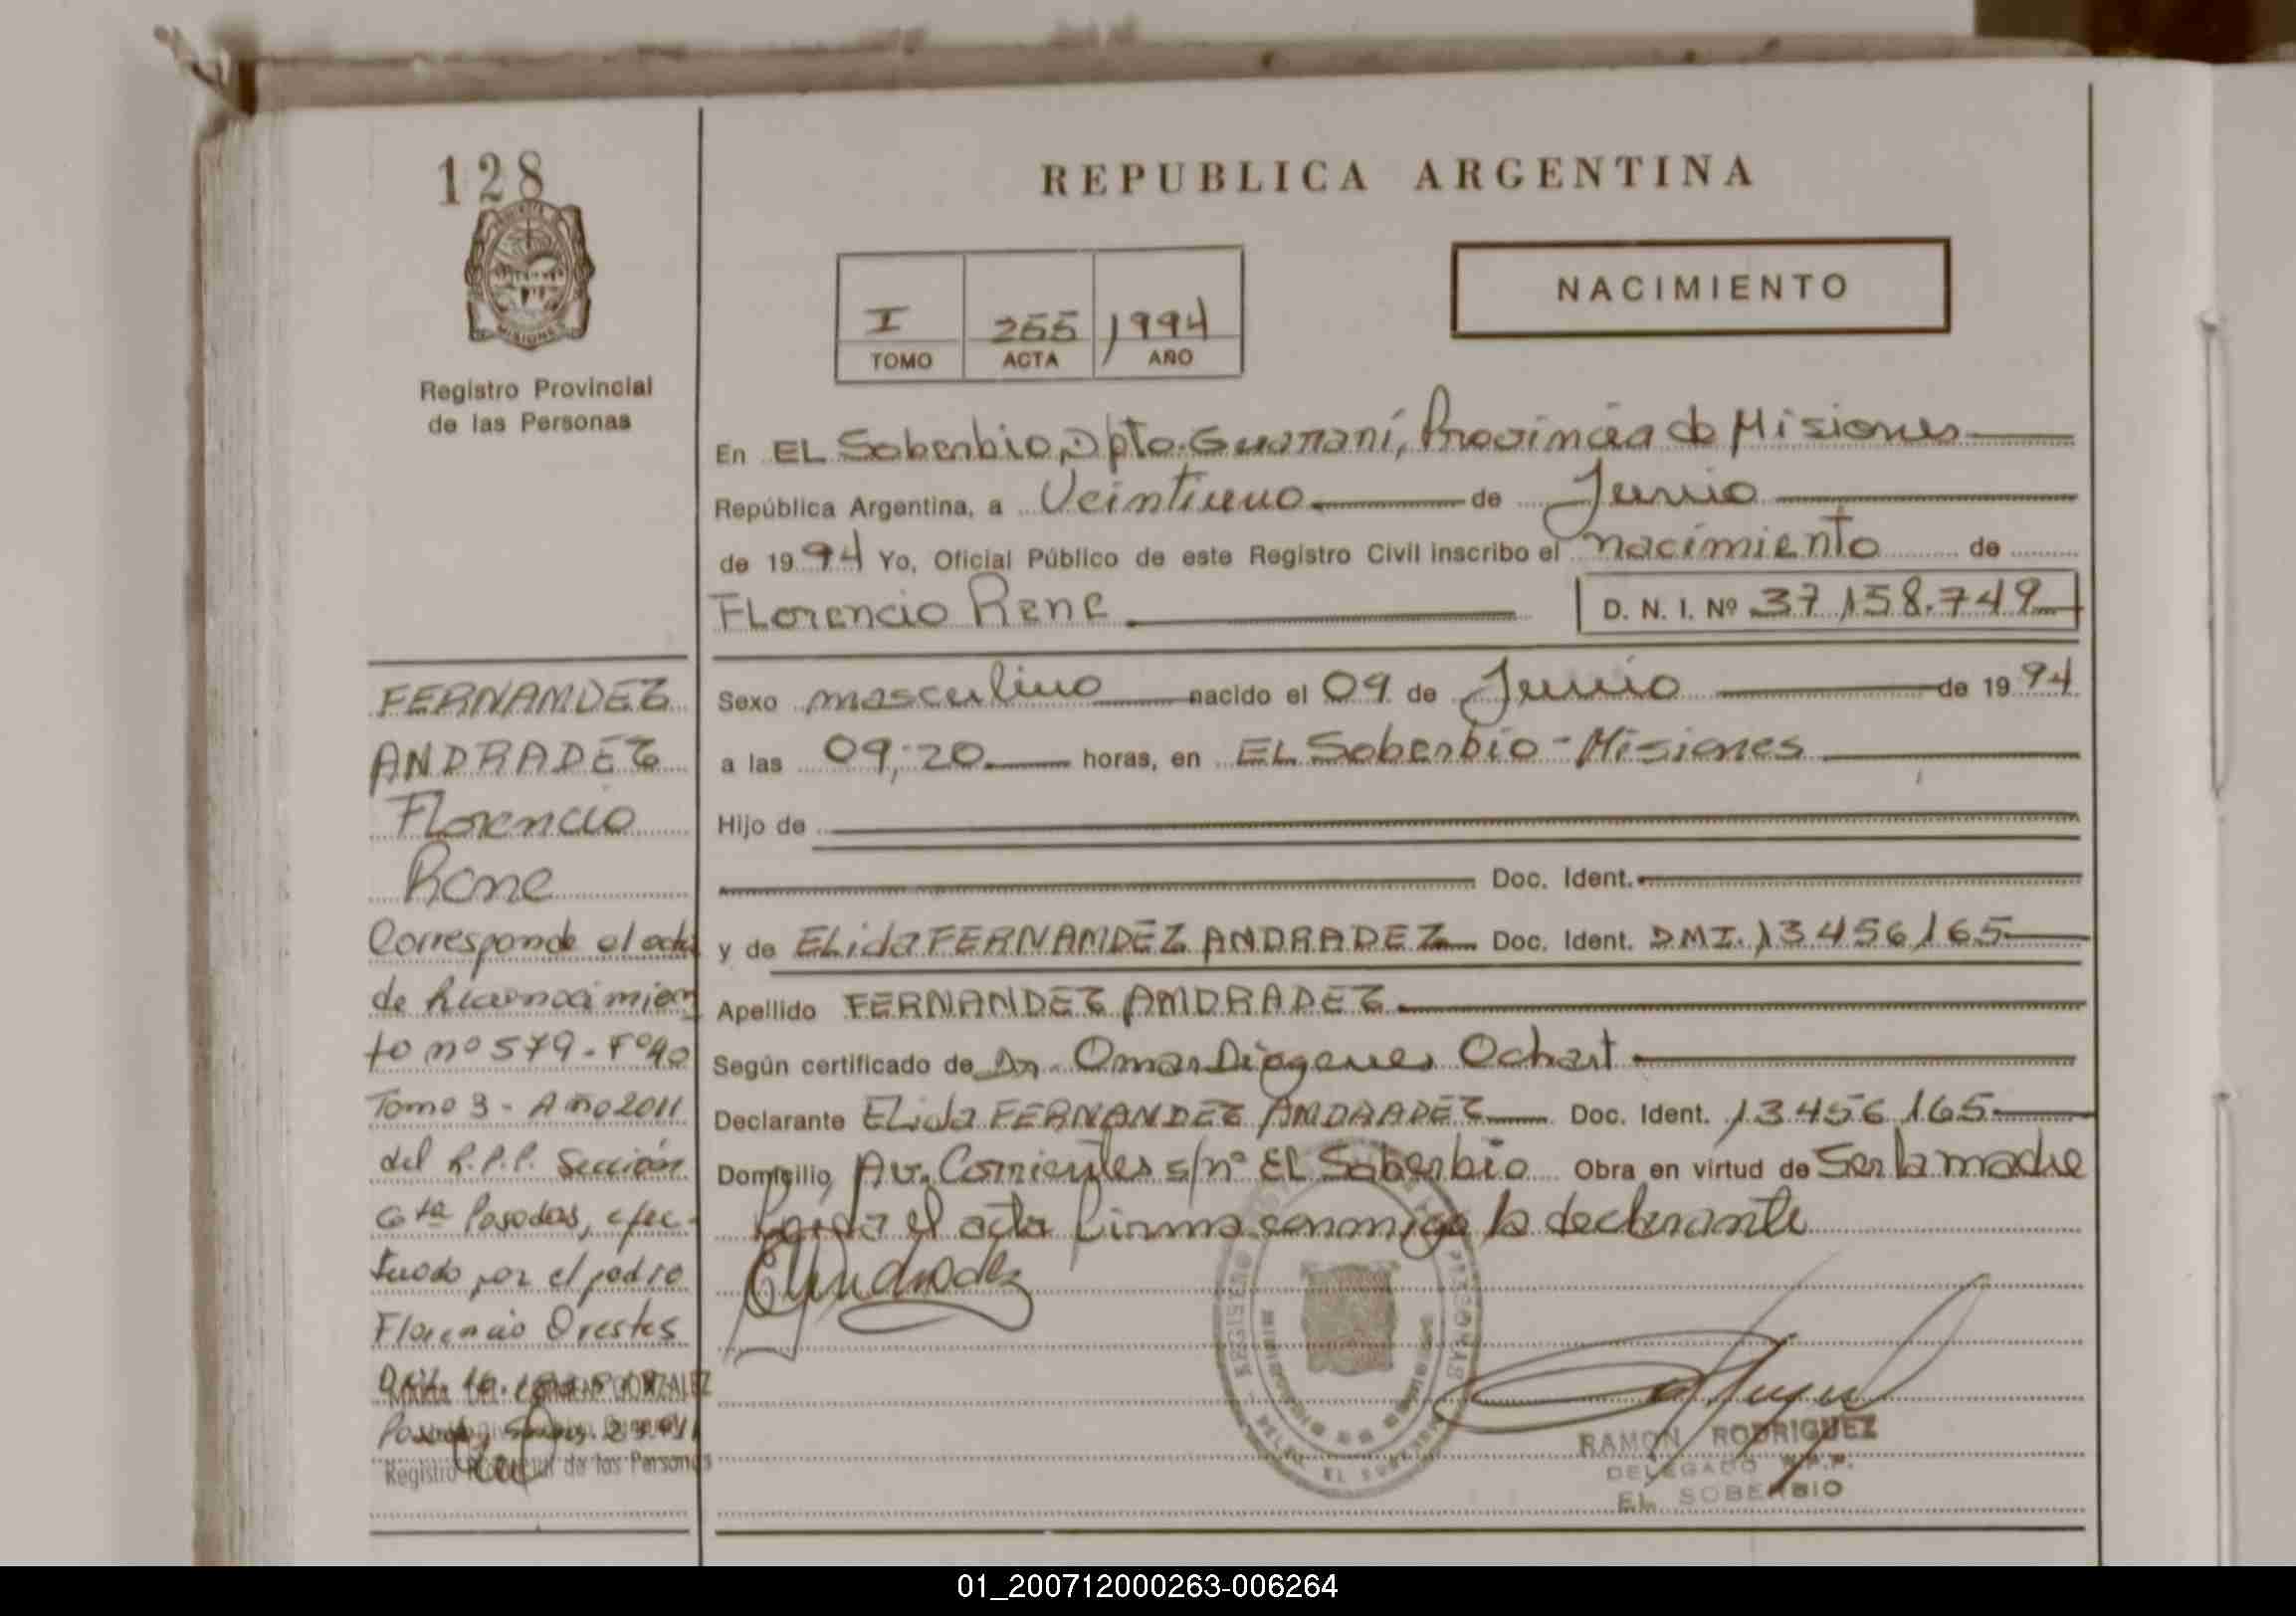 128
MISIONES
Registro Provincial
de las Personas
REPUBLICA ARGENTINA
NACIMIENTO
I 255 1994
TOMO ACTA AÑO
En EL Soberbio, Dpto. Guaraní, Provincia de Misiones
República Argentina, a Veintiuno de Junio
de 1994 Yo, Oficial Público de este Registro Civil inscribo el nacimiento de
Florencio Rene D. N. I. Nº 37.158.749
Sexo masculino nacido el 09 de Junio de 1994
a las 09,20 horas, en EL Soberbio - Misiones
Hijo de
Doc. Ident.
y de ELida FERNANDEZ ANDRADEZ Doc. Ident. DMI. 13456165
Apellido FERNANDEZ ANDRADEZ
Según certificado de Dr. Omar Diogenes Ochart
Declarante ELida FERNANDEZ ANDRADEZ Doc. Ident. 13456165
Domicilio Av. Corrientes s/nº EL Soberbio Obra en virtud de Ser la madre
Leida el acta firma conmigo la declarante
RAMON RODRIGUEZ
DELEGADO R.P.P.
EL SOBERBIO
FERNANDEZ
ANDRADEZ
Florencio
Rene
Corresponde el acta
de Reconocimien
to nº 579 - Fº 90
Tomo 3 - Año 2011
del R.P.P. Sección
6ta Posadas, efec-
tuado por el padre
Florencio Orestes
GONZALEZ
Registro Provincial de las Personas
01_200712000263-006264